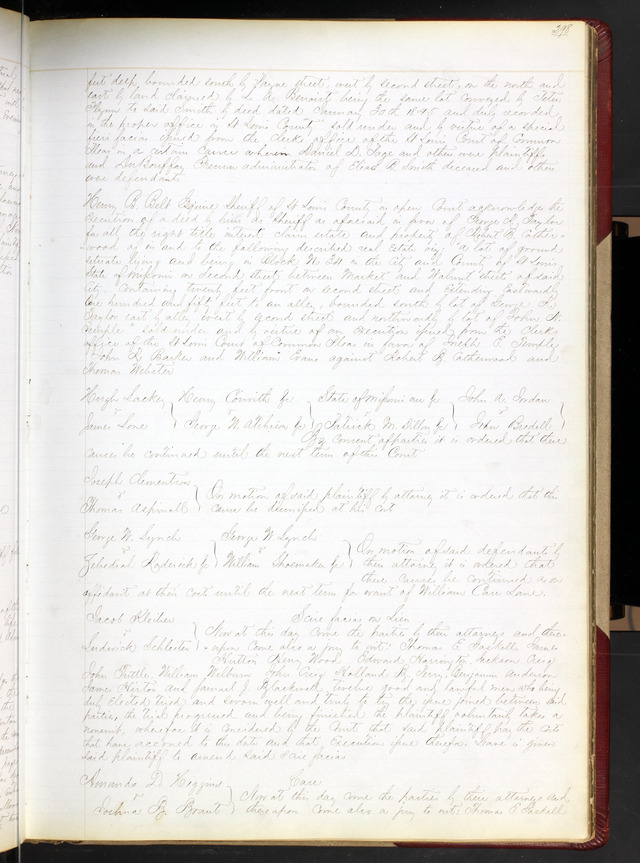 298
feet deep, bounded south by Payne street west by second street, on the north and
east by land claimed by L. A. Benoist being the same lot conveyed by Peter
to said Smith by deed dated January 30th 1845 and duly recorded
in the proper office in St Louis County sold under and by virtue of a special
fieri facias issued from the Clerks office of the St Louis Court of Common
Pleas in a certain cause wherein Daniel D. Page and others were plaintiffs
and administrator of R. Smith deceased and others
were defendants
Henry B. Belt Esquire Sheriff of St Louis County in open Court acknowledges the
execution of a deed by him as Sheriff as aforesaid in favor of George R. Taylor
for all the right title interest claim estate and property of Robert B. Cather-
wood of in and to the following described real Estate viz: "a lot of ground
situate lying and being in Block No 34 in the City and County of St Louis
State of Missouri on Second street between Market and Walnut streets of said
City. Containing twenty feet front on second street and extending Eastwardly
One hundred and fifty feet to an alley, bounded south by lot of George R.
Taylor east by alley west by second street and northwardly by lot of John N.
" Sold under and by virtue of an execution issued from the Clerks
office of the St Louis Court of Common Pleas in favor of Joseph E.
John L. Barker and William Evans against Robert B Catherwood and
Thomas Webster
Hugh Lackey } Henry Corwith &c } State of Missouri use &c } John A. Jordan }
vs vs vs vs
James Lowe } George W Atchison &c } Patrick M. Dillon &c } John Bredell }
By consent of parties it is ordered that these
causes be continued until the next term of this Court
Joseph Clementson }
vs } On motion of said plaintiff by attorney it is ordered that this
Thomas Aspinall } cause be dismissed at his cost
George W. Lynch } George W Lynch }
vs vs } On motion of said defendants by
Zebediah Roderick &c } William Shoemaker &c } their attorney it is ordered that
these causes be continued as on
affidavit at their cost until the next term for want of William Carr Lane.
Jacob } Scire facias on Lien
vs } Now at this day come the parties by their attorneys and there-
Ludwick Schlosser } upon come also a jury to wit: Thomas E Gaskell James
Hutton Henry Wood, Edward Harrington Jackson Craig
John Tuttle William Welburn John Craig Holland R. Terry Benjamin Anderson
James Hirton and Jarrait J. Blackwell twelve good and lawful men who being
duly elected tried and sworn well and truly to try the issue joined between said
parties, the trial progressed and being finished the plaintiff voluntarily takes a
nonsuit, wherefore it is considered by the Court that said plaintiff pay the costs
that have accrued to this date and that execution issue therefor. Leave is given
said plaintiff to amend said scire facias
Amanda D. Higgins } Case
vs } Now at this day come the parties by their attorneys and
Joshua B. Brant } thereupon come also a jury to wit: Thomas E Gaskell